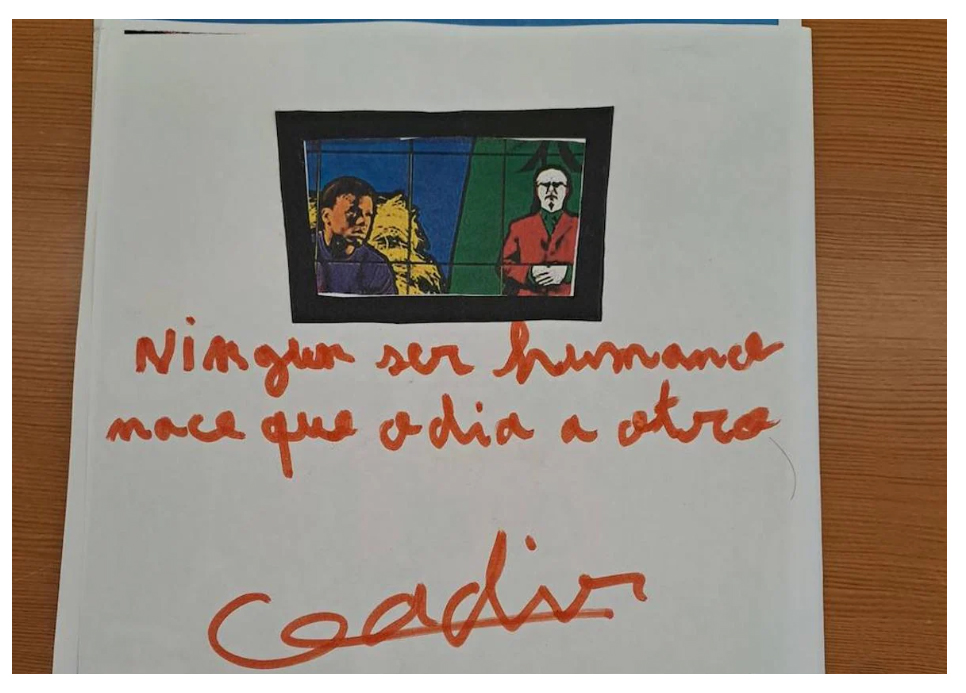 Ningun ser humano
nace que odia a otro